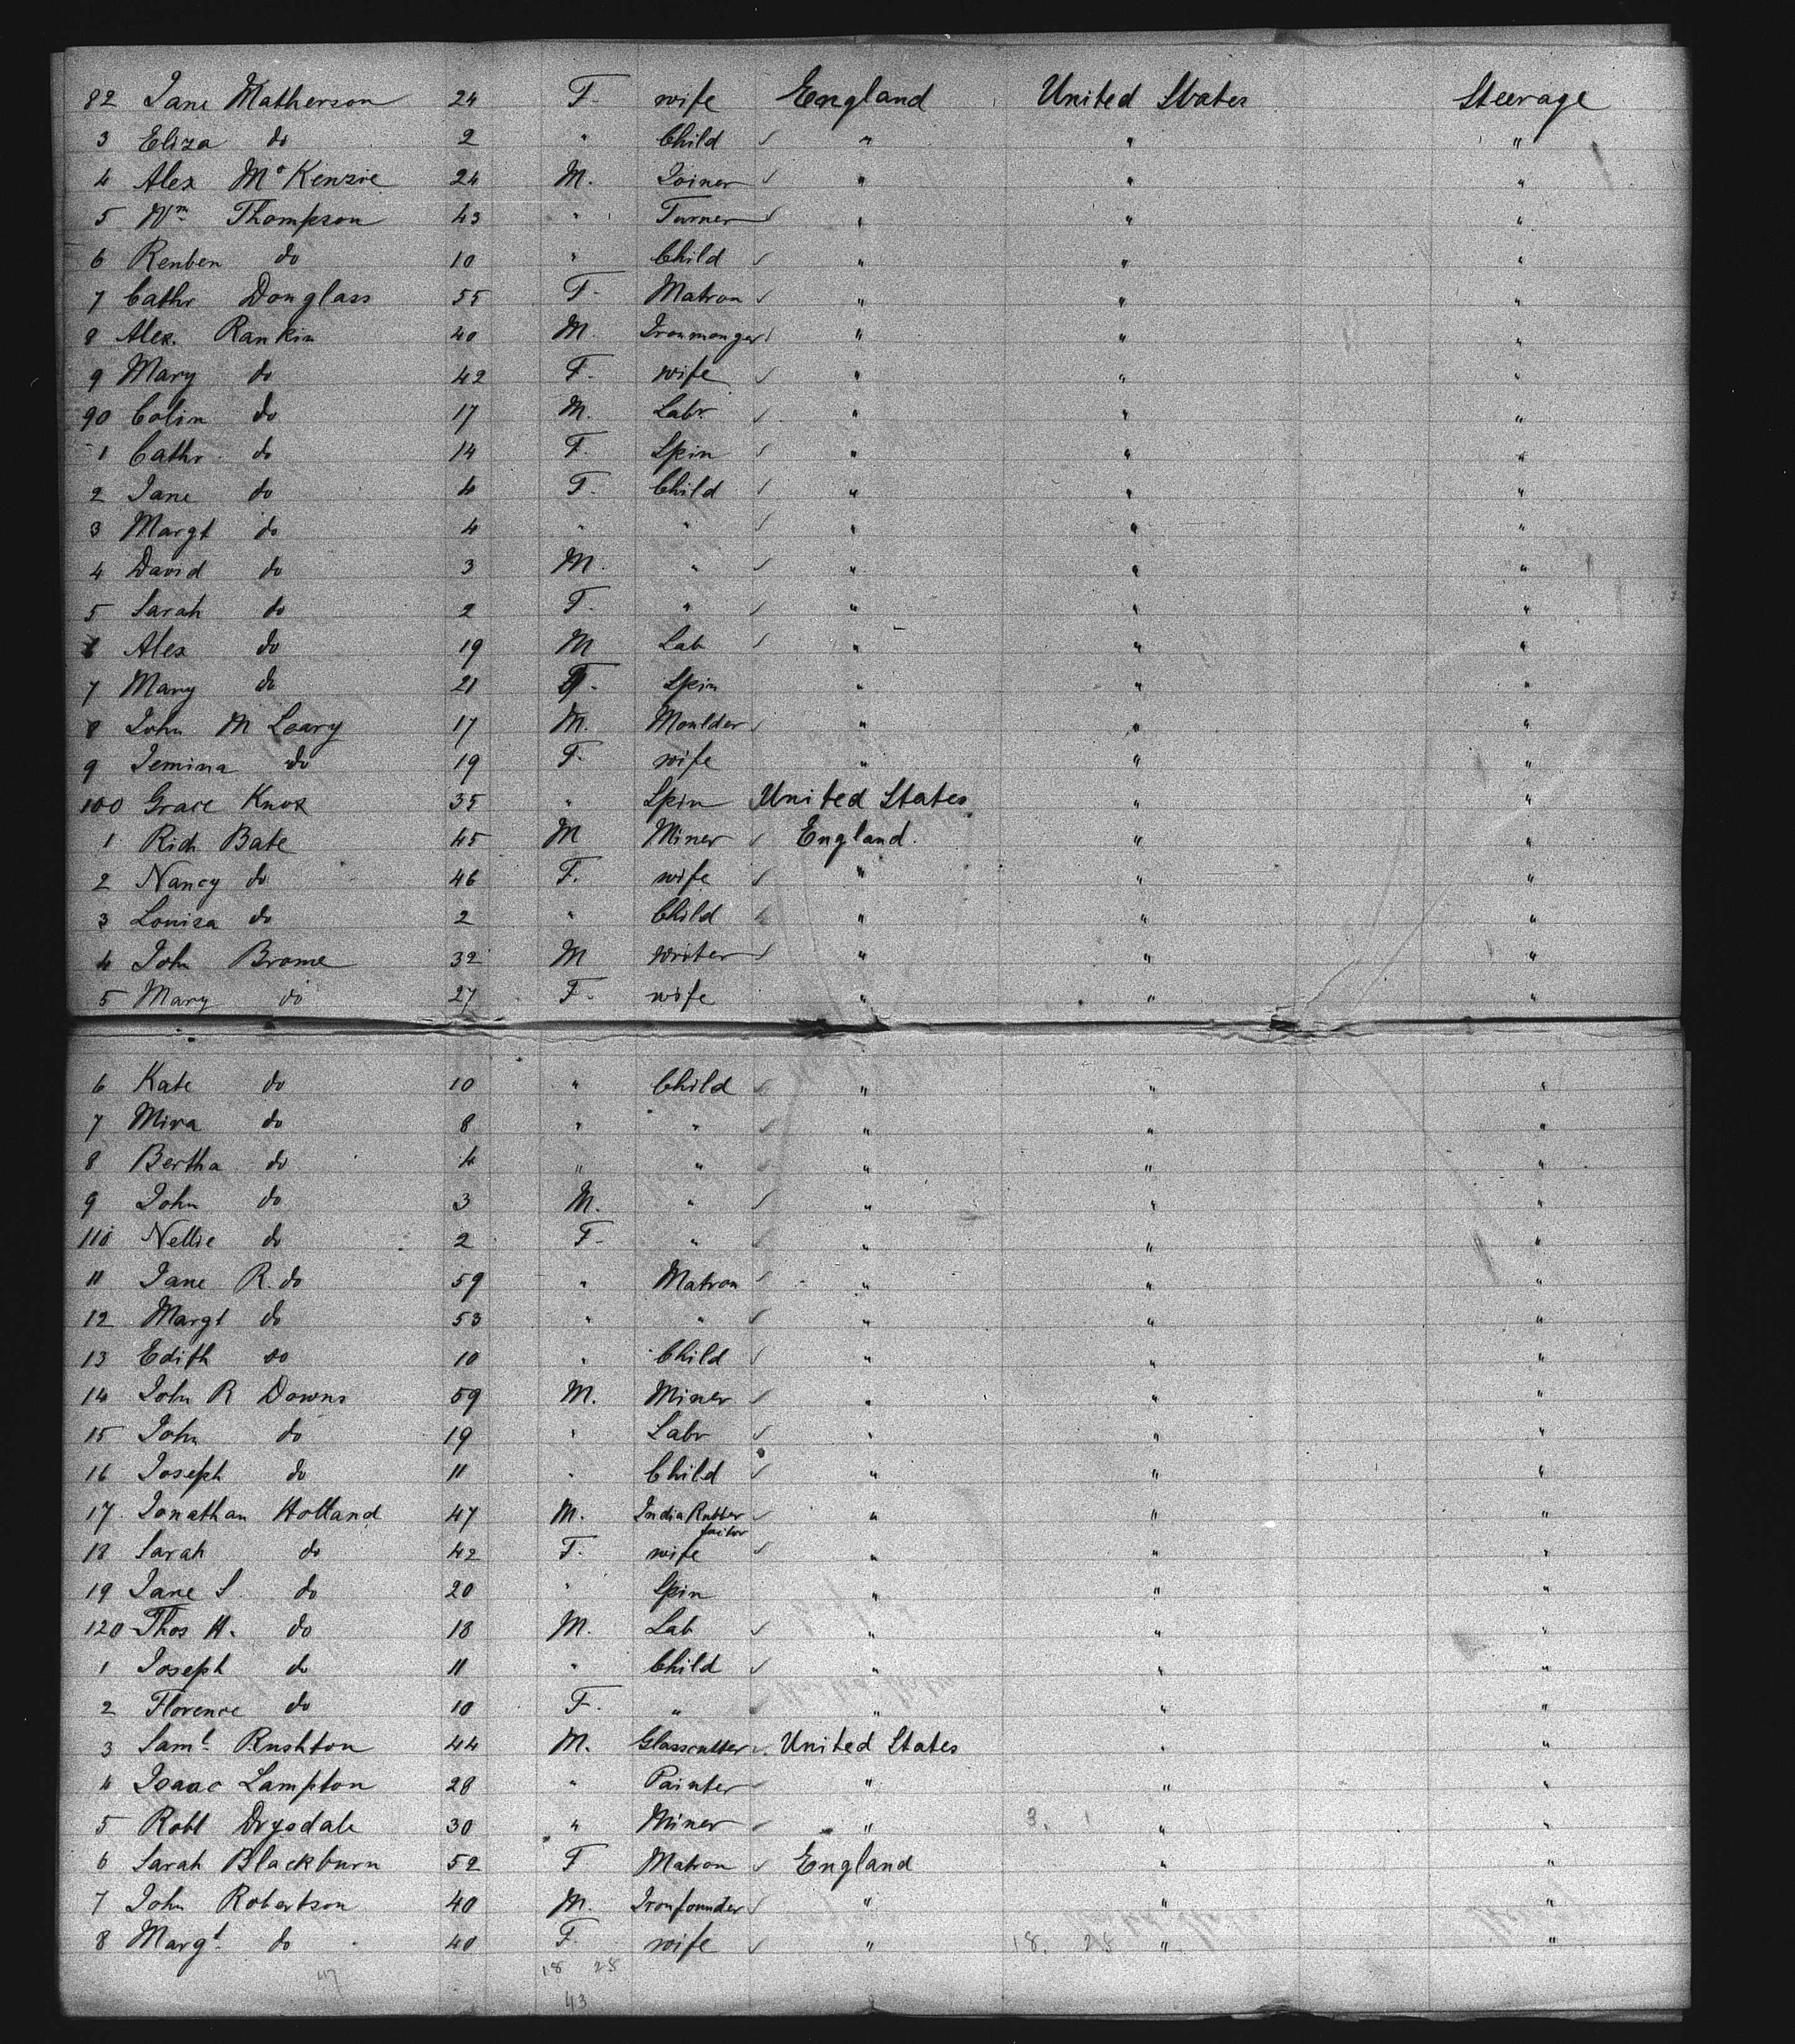 82 Jane Matherson 24 F. wife England United States Steerage
3 Eliza do 2 " Child ✓ " " "
4 Alex McKenzie 24 M. Joiner ✓ " " "
5 Wm Thompson 43 " Turner ✓ " " "
6 Reuben do 10 " Child ✓ " " "
7 Cathr Douglass 55 F. Matron ✓ " " "
8 Alex. Rankin 40 M. Ironmonger ✓ " " "
9 Mary do 42 F. wife ✓ " " "
90 Colin do 17 M. Labr ✓ " " "
1 Cathr do 14 F. Spin ✓ " " "
2 Jane do 4 F. Child ✓ " " "
3 Margt do 4 " " ✓ " " "
4 David do 3 M. " ✓ " " "
5 Sarah do 2 F. " ✓ " " "
6 Alex do 19 M Lab ✓ " " "
7 Mary do 21 F. Spin " " "
8 John M Leary 17 M. Moulder ✓ " " "
9 Jemina do 19 F. wife " " "
100 Grace Knox 35 " Spin United States " "
1 Rich Bate 45 M Miner ✓ England. " "
2 Nancy do 46 F. wife ✓ " " "
3 Louisa do 2 " Child ✓ " " "
4 John Brome 32 M writer ✓ " " "
5 Mary do 27 F. wife " " "
6 Kate do 10 " Child ✓ " " "
7 Mira do 8 " " ✓ " " "
8 Bertha do 4 " " ✓ " " "
9 John do 3 M. " ✓ " " "
110 Nellie do 2 F. " ✓ " " "
11 Jane R. do 59 " Matron ✓ " " "
12 Margt do 53 " " ✓ " " "
13 Edith do 10 " Child ✓ " " "
14 John R Downs 59 M. Miner ✓ " " "
15 John do 19 " Labr ✓ " " "
16 Joseph do 11 " Child ✓ " " "
17. Jonathan Holland 47 M. India Rubber ✓ " " "
factor
18 Sarah do 42 F. wife ✓ " " "
19 Jane S. do 20 " Spin " " "
120 Thos H. do 18 M. Lab ✓ " " "
1 Joseph do 11 " Child ✓ " " "
2 Florence do 10 F. " ✓ " " "
3 Saml Rushton 44 M. Glasscutter ✓ United States " "
4 Isaac Lampton 28 " Painter ✓ " " "
5 Robt Drysdale 30 " Miner ✓ " 3. 1 " "
6 Sarah Blackburn 52 F Matron ✓ England " "
7 John Robertson 40 M. Ironfounder ✓ " " "
8 Margt do 40 F. wife ✓ " 18. 28 " "
47 18 28
43